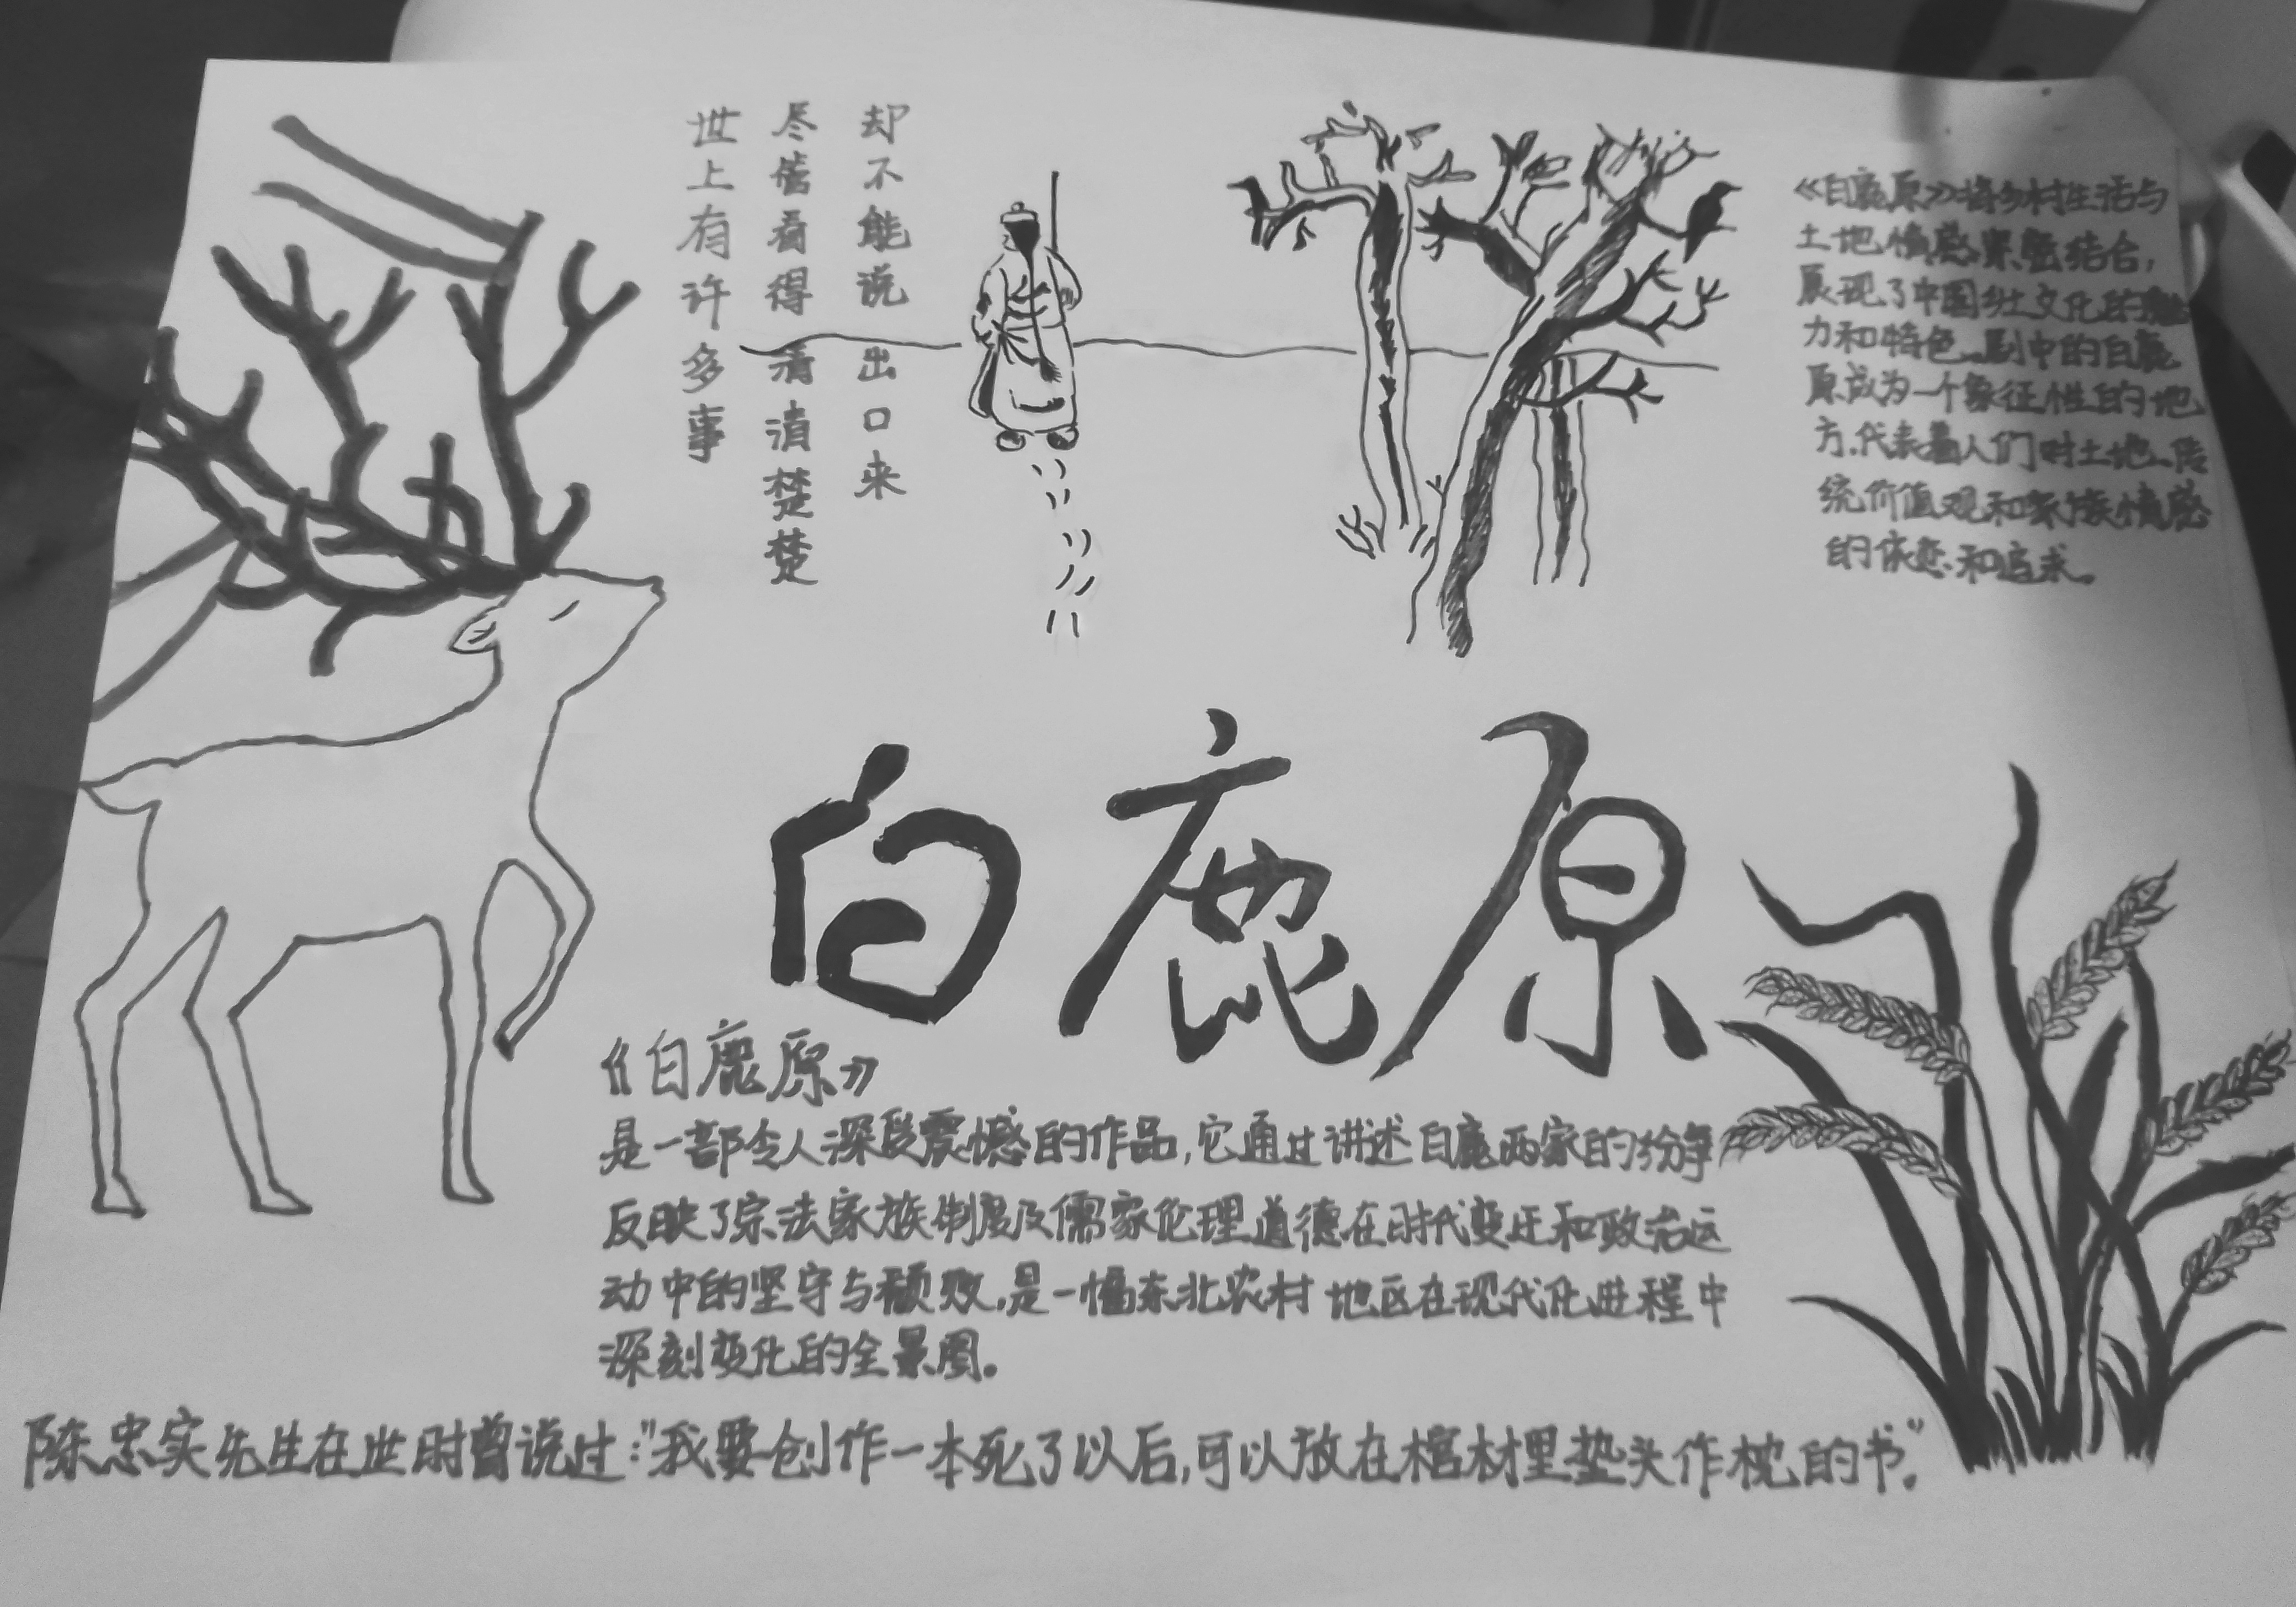 世上有许多事
尽管看得清清楚楚
却不能说出口来
《白鹿原》将乡村生活与
土地情感紧密结合,
展现了中国乡土文化的魅
力和特色。剧中的白鹿
原成为一个象征性的地
方,代表着人们对土地、传
统价值观和家族情感
的依恋和追求。
白鹿原
《白鹿原》
是一部令人深段震憾的作品,它通过讲述白鹿两家的纷争
反映了宗法家族制度及儒家伦理道德在时代变迁和政治运
动中的坚守与颓败,是一幅东北农村地区在现代化进程中
深刻变化的全景图。
陈忠实先生在世时曾说过:"我要创作一本死了以后,可以放在棺材里垫头作枕的书。"